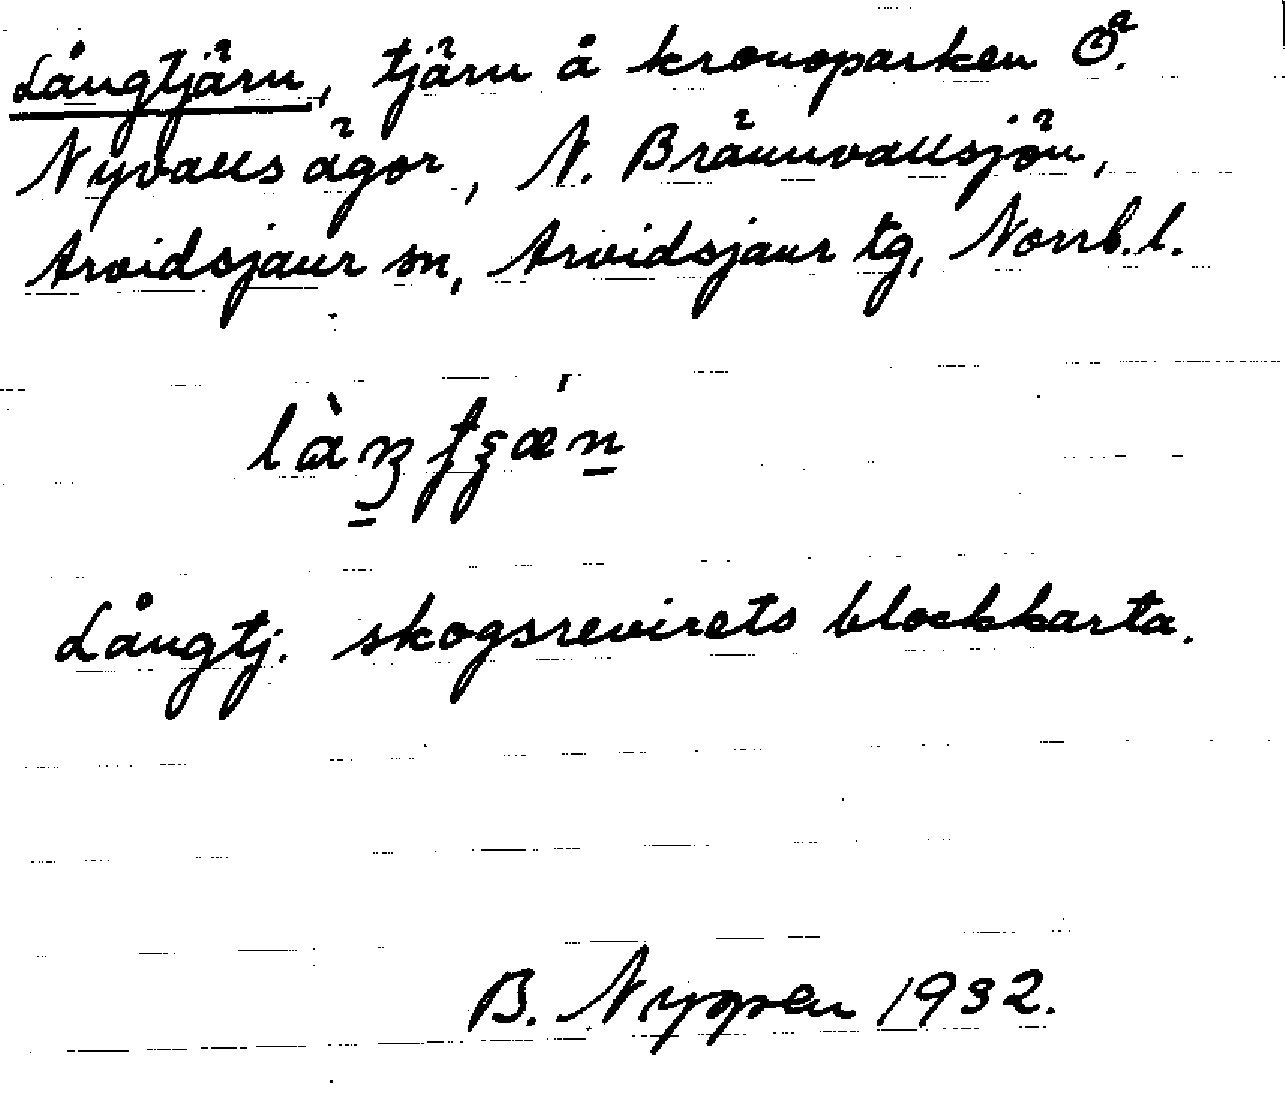 Långtjärn, tjärn å kronoparken Ö.
Nyvalls ägor, N. Brännvallsjön,
Arvidsjaur sn, Arvidsjaur tg, Norrb. l.
Långtj. skogsrevirets blockkarta.
B. Nygren 1932.